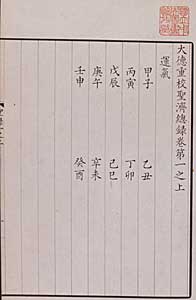 大德重校聖濟總錄卷第一之上
運氣
甲子 乙丑
丙寅 丁卯
戊辰 己巳
庚午 辛未
壬申 癸酉